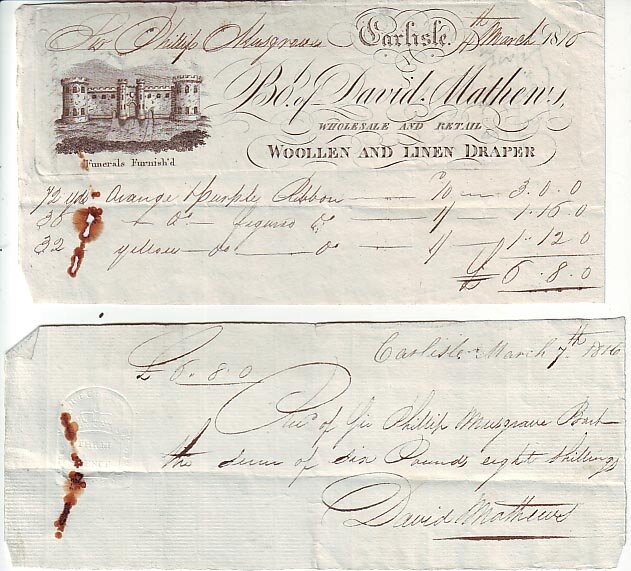 Sir Phillip Musgrave Carlisle. March 1816
Bo.t of David Mathews,
WHOLESALE AND RETAIL
WOOLLEN AND LINEN DRAPER
Funerals Furnish'd
72 yds Orange & Purple Ribbon 3.0.0
36 Do figured Do 1.16.0
32 yellow Do Do 1.12.0
£6.8.0
Carlisle March 7th 1816
£6.8.0
Rec.d of Sir Phillip Musgrave Bart
the sum of Six Pounds eight Shillings
David Mathews